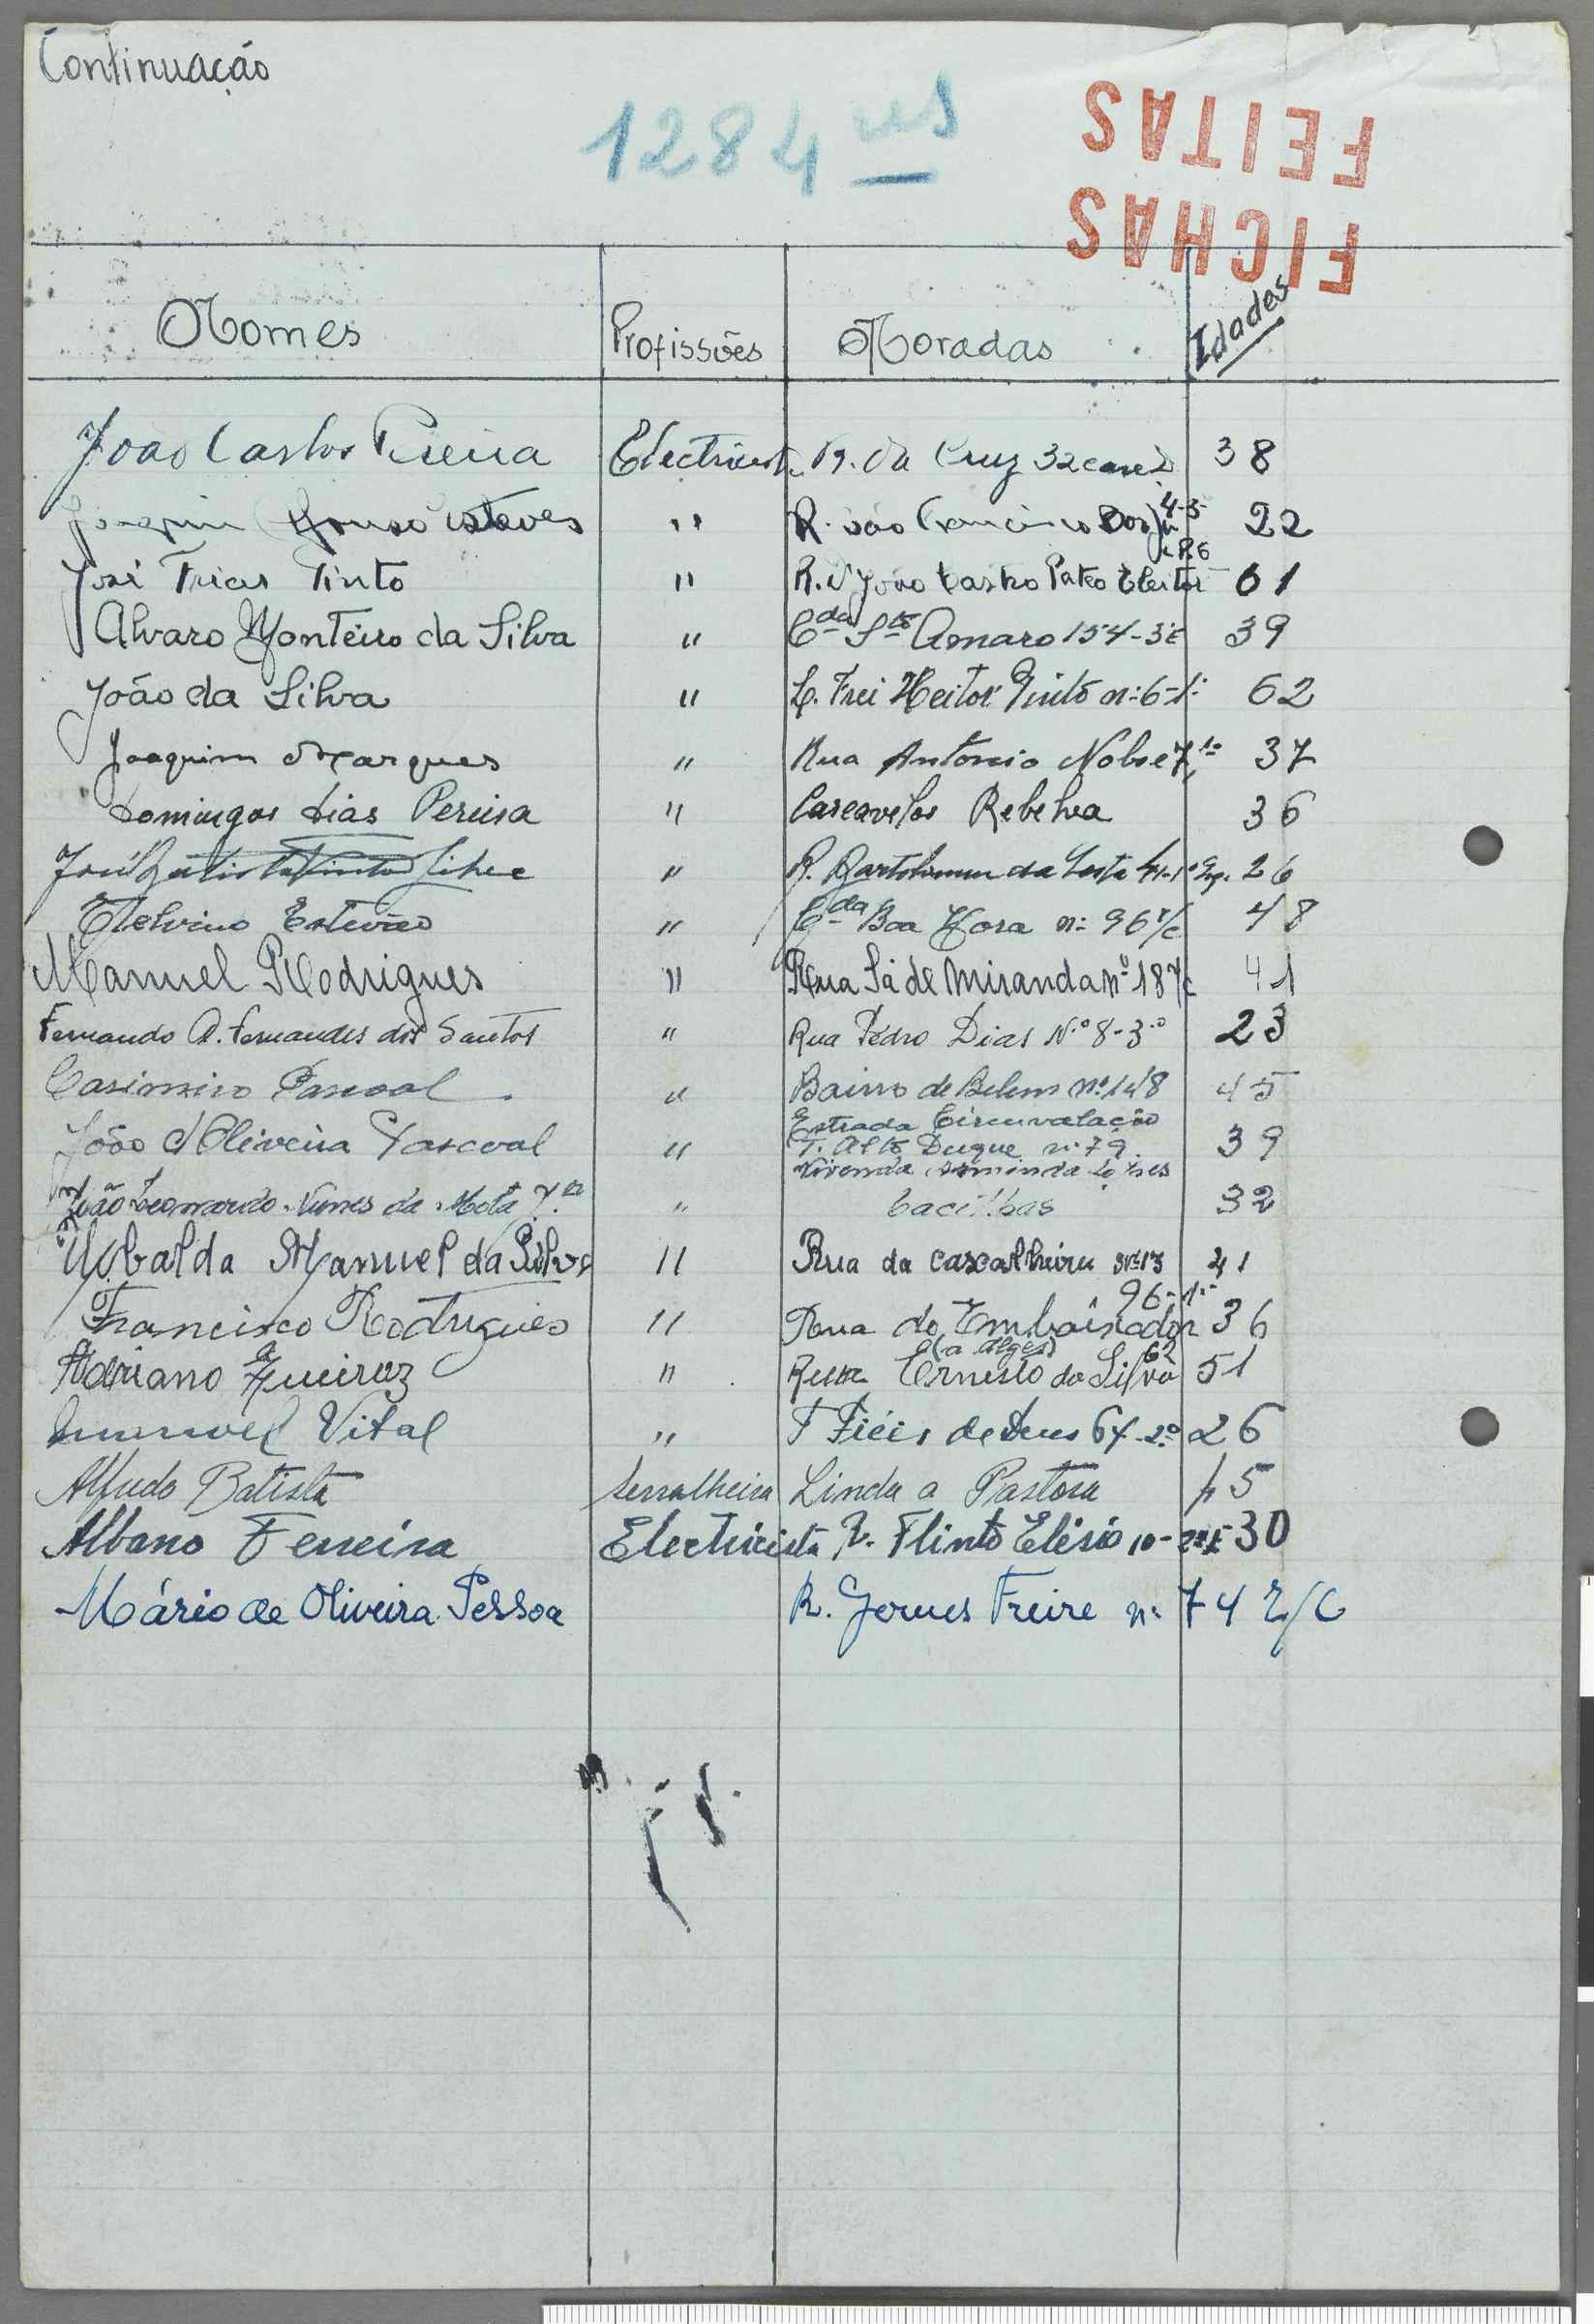 Continuação
1284
FICHAS
FEITAS
Nomes Profissões Moradas Idades
João Carlos Pereira Electricista R. da Cruz 32 38
Joaquim Afonso Esteves " R. São Francisco 22
José Frias Pinto " R. D João Castro Pateo Eleitor 61
Alvaro Monteiro da Silva " Cda Sto Amaro 154-3E 39
João da Silva " L. Frei Heitor Pinto nº 6-1º 62
Joaquim Marques " Rua Antonio Nobre 7 1º 37
Domingos Dias Pereira " Carcavelos Rebelva 36
José " R. Bartolomeu da Costa 41-1º Esq. 26
Etelvino Estevão " Cda Boa Hora nº 96 r/c 48
Manuel Rodrigues " Rua Sá de Miranda nº 18 r/c 41
Fernando A. Fernandes dos Santos " Rua Pedro Dias N.º 8-3.º 23
Casimiro Pascoal " Bairro de Belem nº 148 45
João d'Oliveira Pascoal " Estrada Circunvalação
T. Alto Duque nº 79 39
Vivenda Arminda
João Leonardo Nunes da Mota " Cacilhas 32
Ubalda Manuel da Silva " Rua da Cascalheira nº 13 41
Francisco Rodrigues " Rua do Embaixador 96-1º 36
Adriano Queiroz " Rua Ernesto da Silva 62 (a Algés) 51
Manuel Vital " T Fiéis de Deus 64-2º 26
Alfredo Batista Serralheiro Linda a Pastora 45
Albano Ferreira Electricista R. Flinto Elisio 10-2ºE 30
Mário de Oliveira Pessoa R. Gomes Freire nº 74 R/C